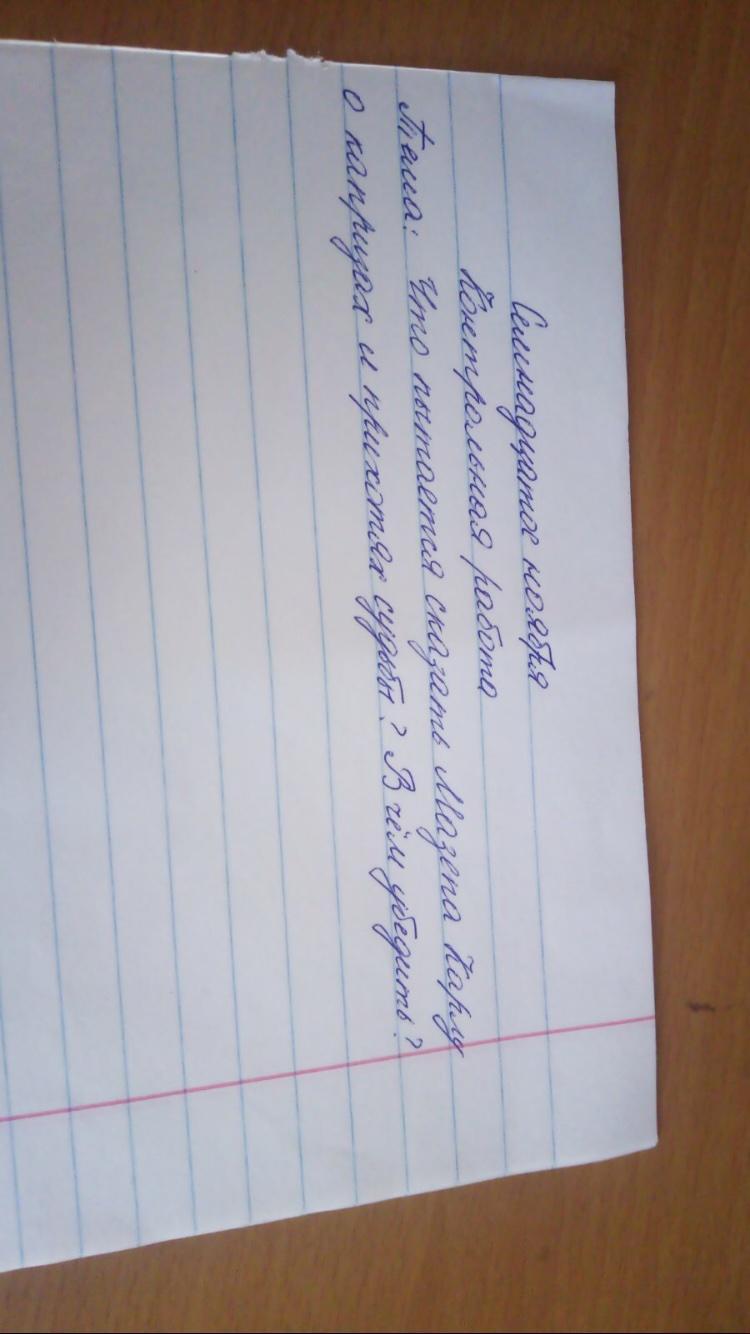 Семнадцатое ноября
Контрольная работа
Тема: Что пытается сказать Мазепа Карлу
о капризах и прихотях судьбы? В чём убедить?